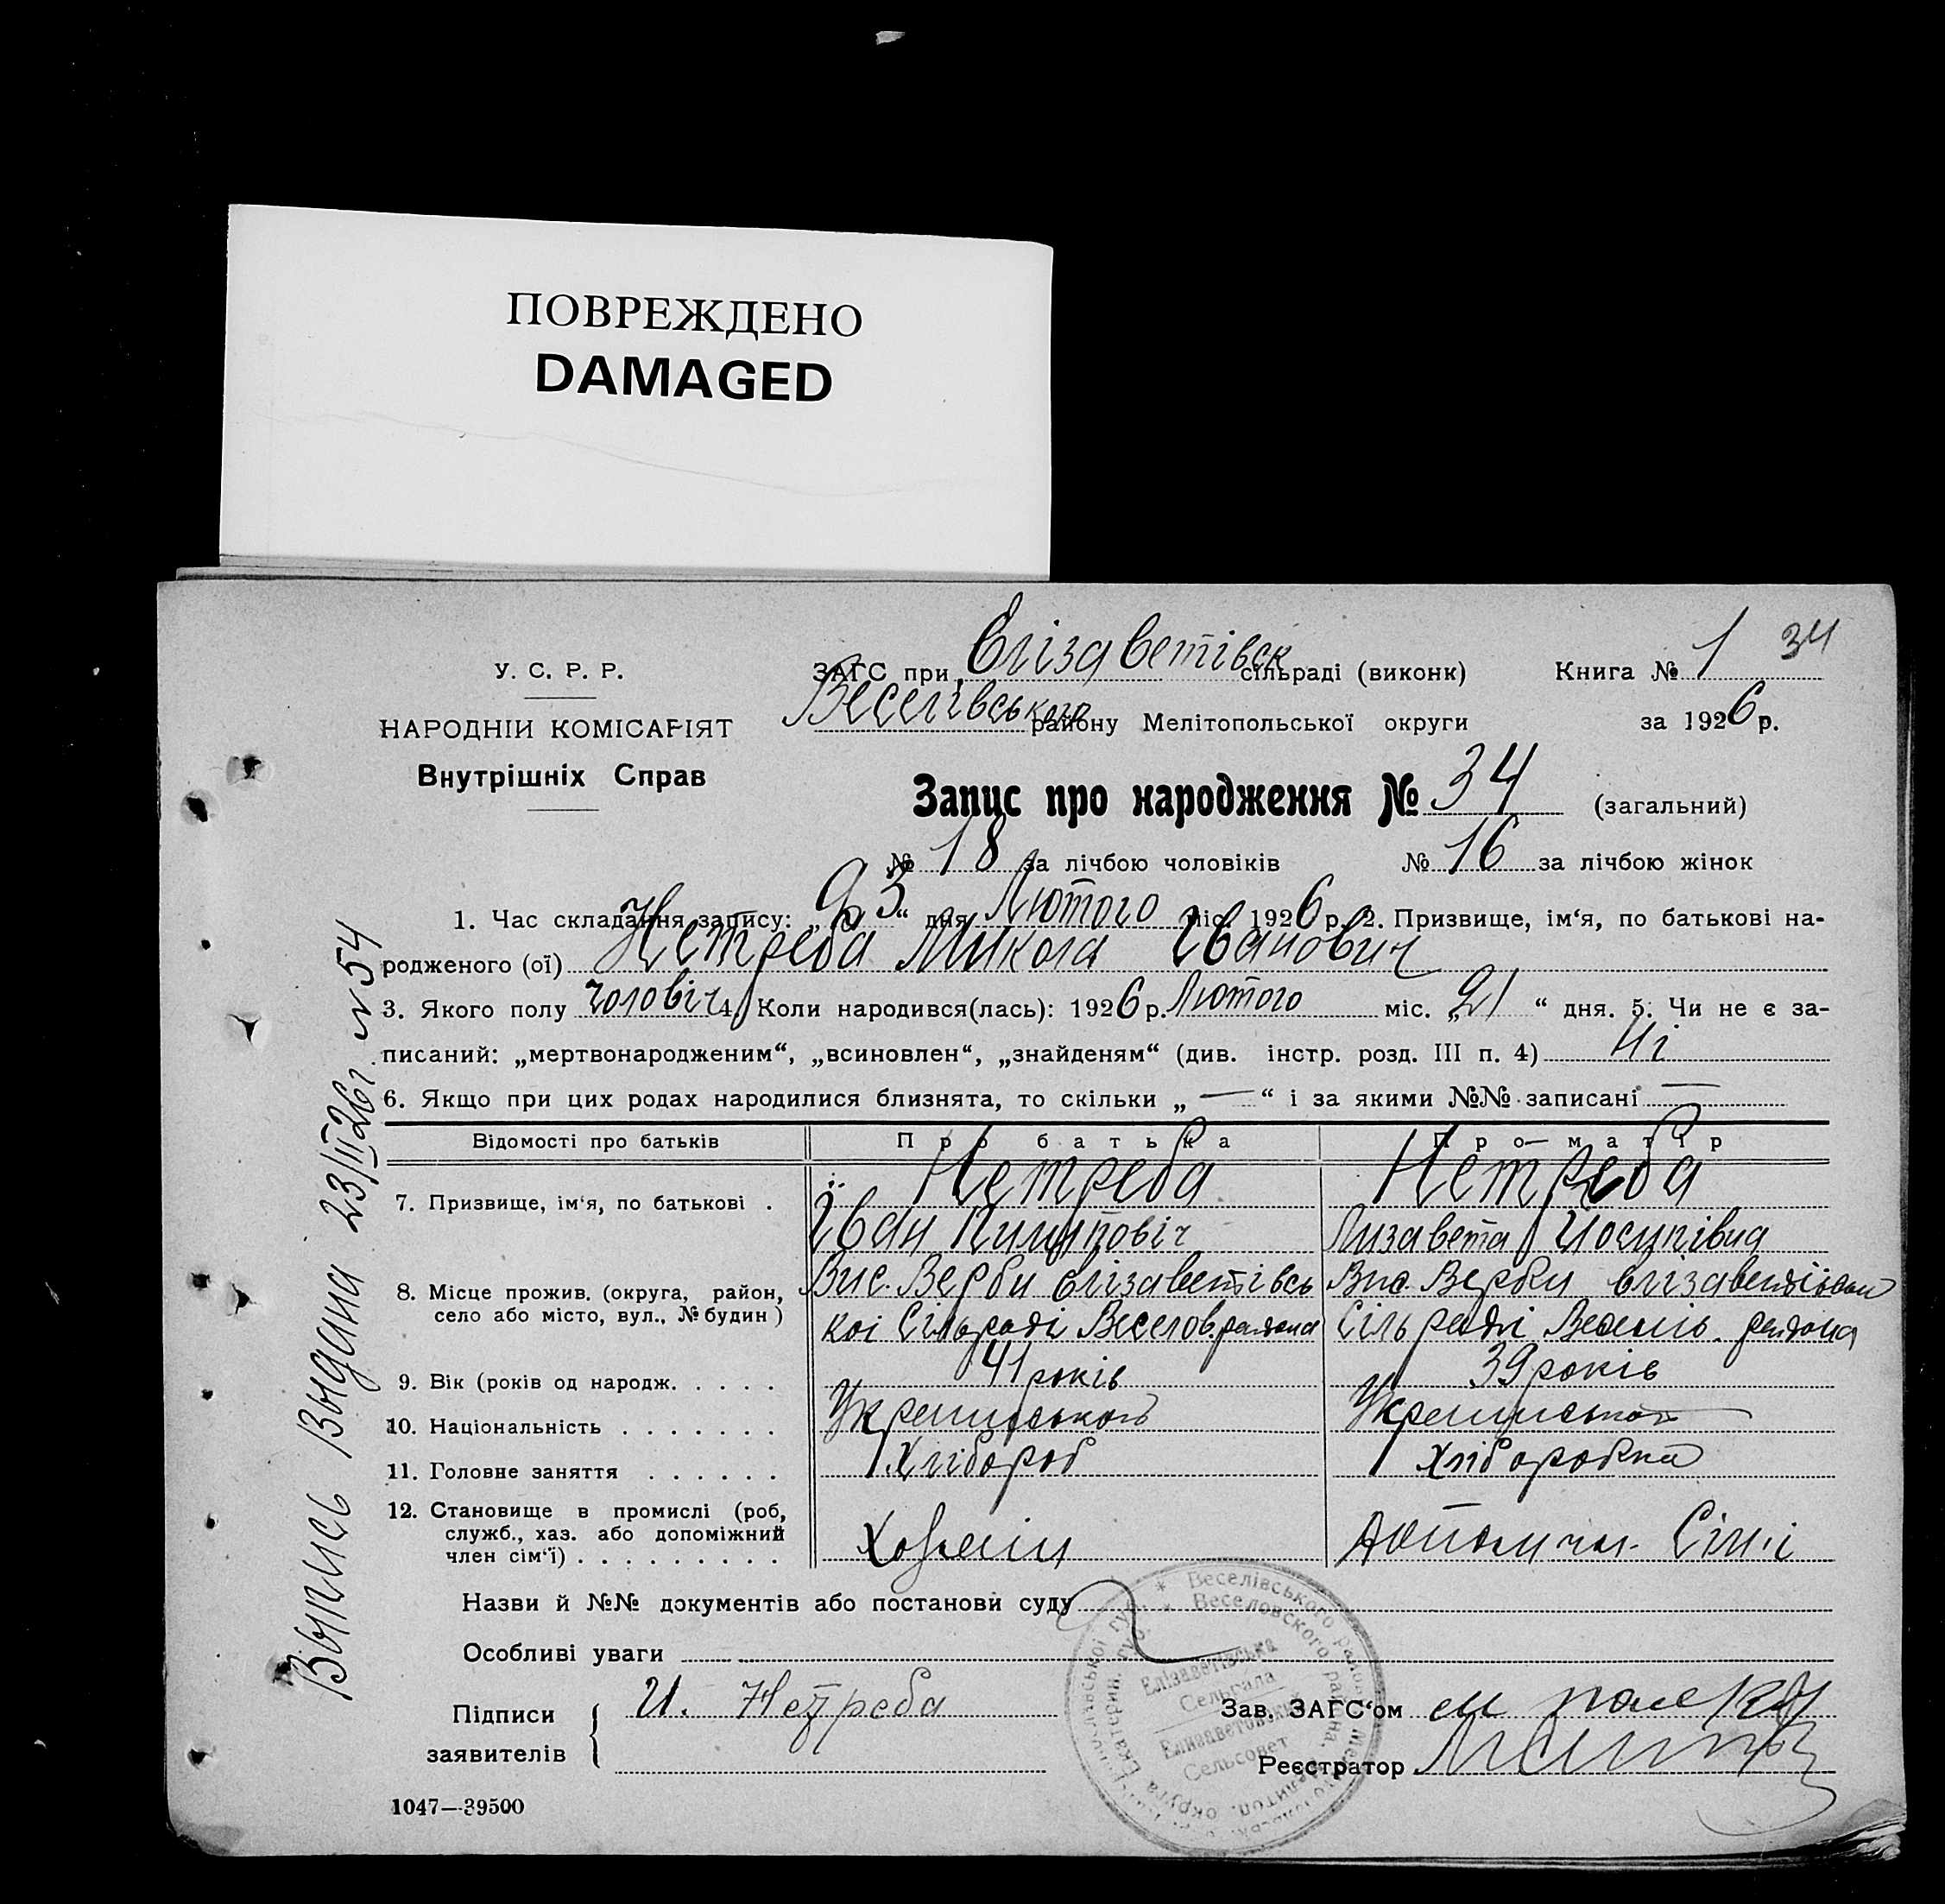 ПОВРЕЖДЕНО
DAMAGED
У. С. Р. Р.
НАРОДНІИ КОМІСАРІЯТ
Внутрішніх Справ
ЗАГС при Єлізаветівськ сільраді (виконк) Книга № 1 34
Веселівського району Мелітопольської округи за 1926 р.
Запис про народження № 34 (загальний)
№ 18 за лічбою чоловіків № 16 за лічбою жінок
1. Час складання запису: „23“ дня Лютого міс. 1926 р. 2. Призвище, ім‘я, по батькові на-
родженого (ої) Нетреба Микола Іванович
3. Якого полу чоловіч 4. Коли народився(лась): 1926 р. Лютого міс. „21“ дня. 5. Чи не є за-
писаний: „мертвонародженим“, „всиновлен“, „знайденям“ (див. інстр. розд. III п. 4) Ні
6. Якщо при цих родах народилися близнята, то скільки „—“ і за якими №№ записані —
Відомості про батьків Про батька Про матір
7. Призвище, ім‘я, по батькові . Нетреба Нетреба
Іван Пилипович Лизавета Йосипівна
8. Місце прожив. (округа, район, Вис. Верби Єлізаветівсь Вис. Верби Єлізаветівськ
село або місто, вул., № будин) кої Сільраді Веселов. района Сільраді Веселів. района
9. Вік (років од народж. . . . . 41 років 39 років
10. Національність . . . . . . . Украинської Украинської
11. Головне заняття . . . . . . Хлібороб Хліборобка
12. Становище в промислі (роб,
служб., хаз. або допоміжний
член сім‘ї) . . . . . . . . . Хозяїн Допом чл. Сімї
Назви й №№ документів або постанови суду
Особливі уваги
Підписи И. Нетреба Зав. ЗАГС‘ом
заявителів Реєстратор
1047—39500
Выпись Выдана 23/II 26 г. №54
Веселівського району Мелітопольської
Веселовского района, Мелитоп. округа Екатерин. губ.
Елізаветівська
Сельрада
Елизаветовский
Сельсовет